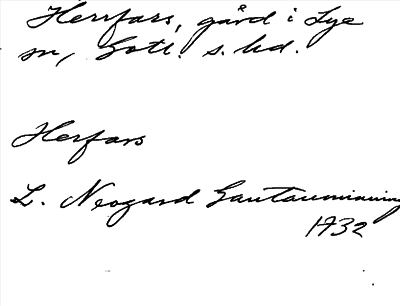 Herrfars, gård i Lye
sn, Gotl. s. hd.
Herfars
L. Neogard Gautauminning
1732